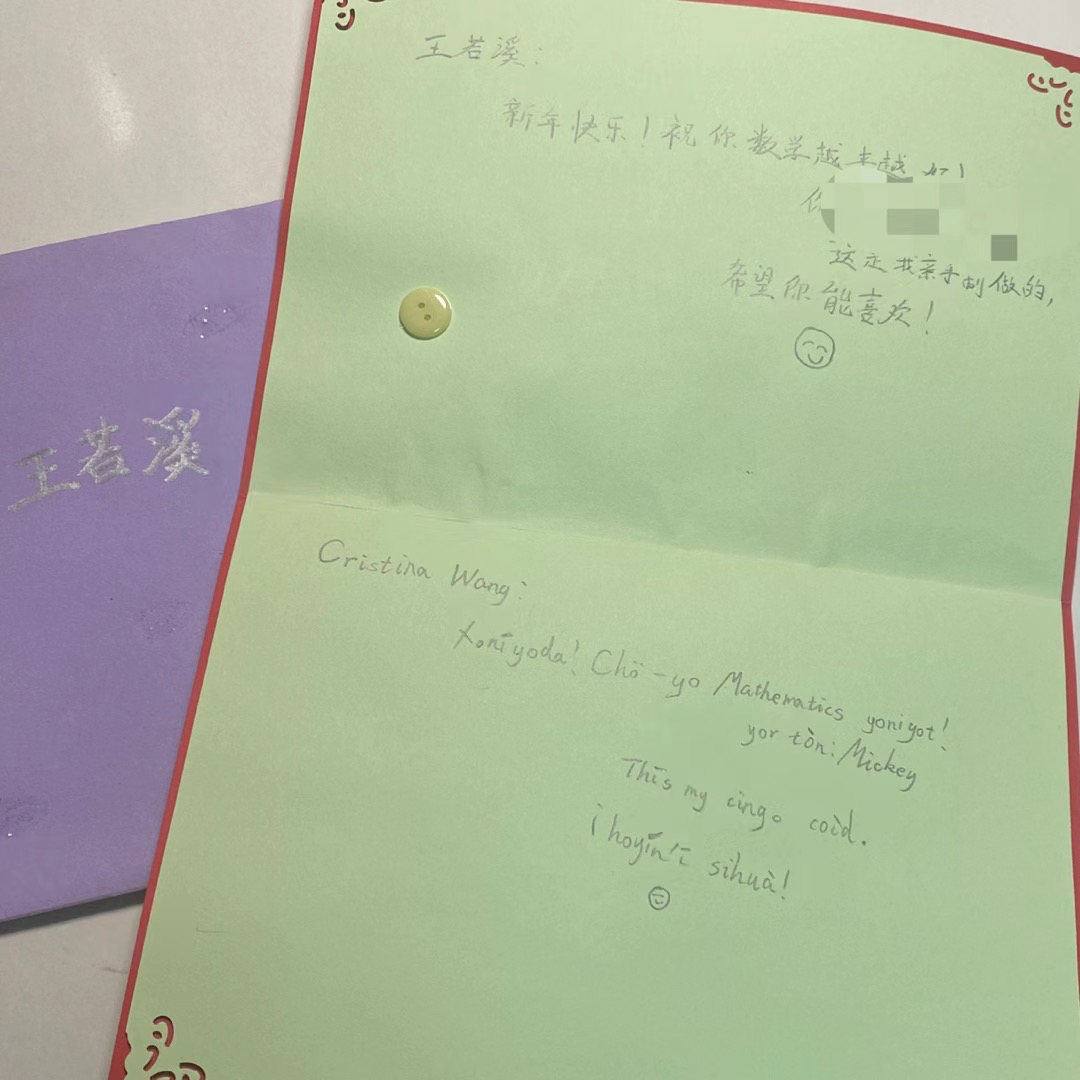 王若溪：
新年快乐！祝你数学越来越好！
这是我亲手制做的，
希望你能喜欢！
王若溪
Cristina Wang:
Xonīyoda! Chö-yo Mathematics yoniyot!
yor tòn: Mickey
Thīs my cingo coìd.
i hoyīn'ī sihuà!